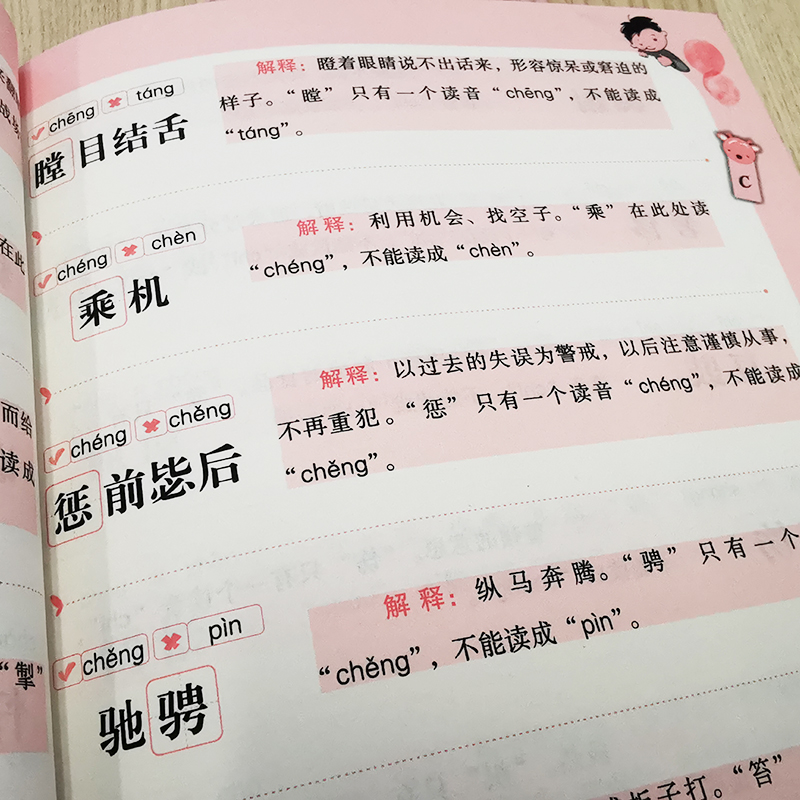 在此
而给
读成
“掣”
chēng táng
瞠目结舌
解释：瞪着眼睛说不出话来，形容惊呆或窘迫的
样子。“瞠” 只有一个读音“chēng”，不能读成
“táng”。
C
chéng chèn
乘机
解释：利用机会、找空子。“乘” 在此处读
“chéng”，不能读成“chèn”。
chéng chěng
惩前毖后
解释：以过去的失误为警戒，以后注意谨慎从事，
不再重犯。“惩” 只有一个读音“chéng”，不能读成
“chěng”。
chěng pìn
驰骋
解释：纵马奔腾。“骋” 只有一个
“chěng”，不能读成“pìn”。
板子打。“笞”